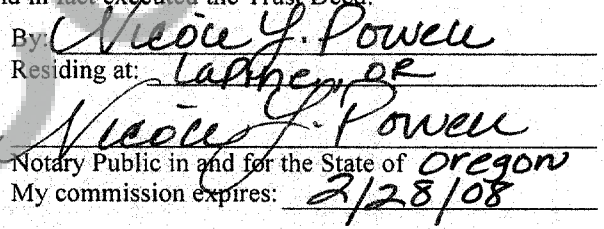 nd in fact executed the Trust Deed.
By: Nicole Y. Powell
Residing at: LaPine, OR
Nicole Y. Powell
Notary Public in and for the State of Oregon
My commission expires: 2/28/08